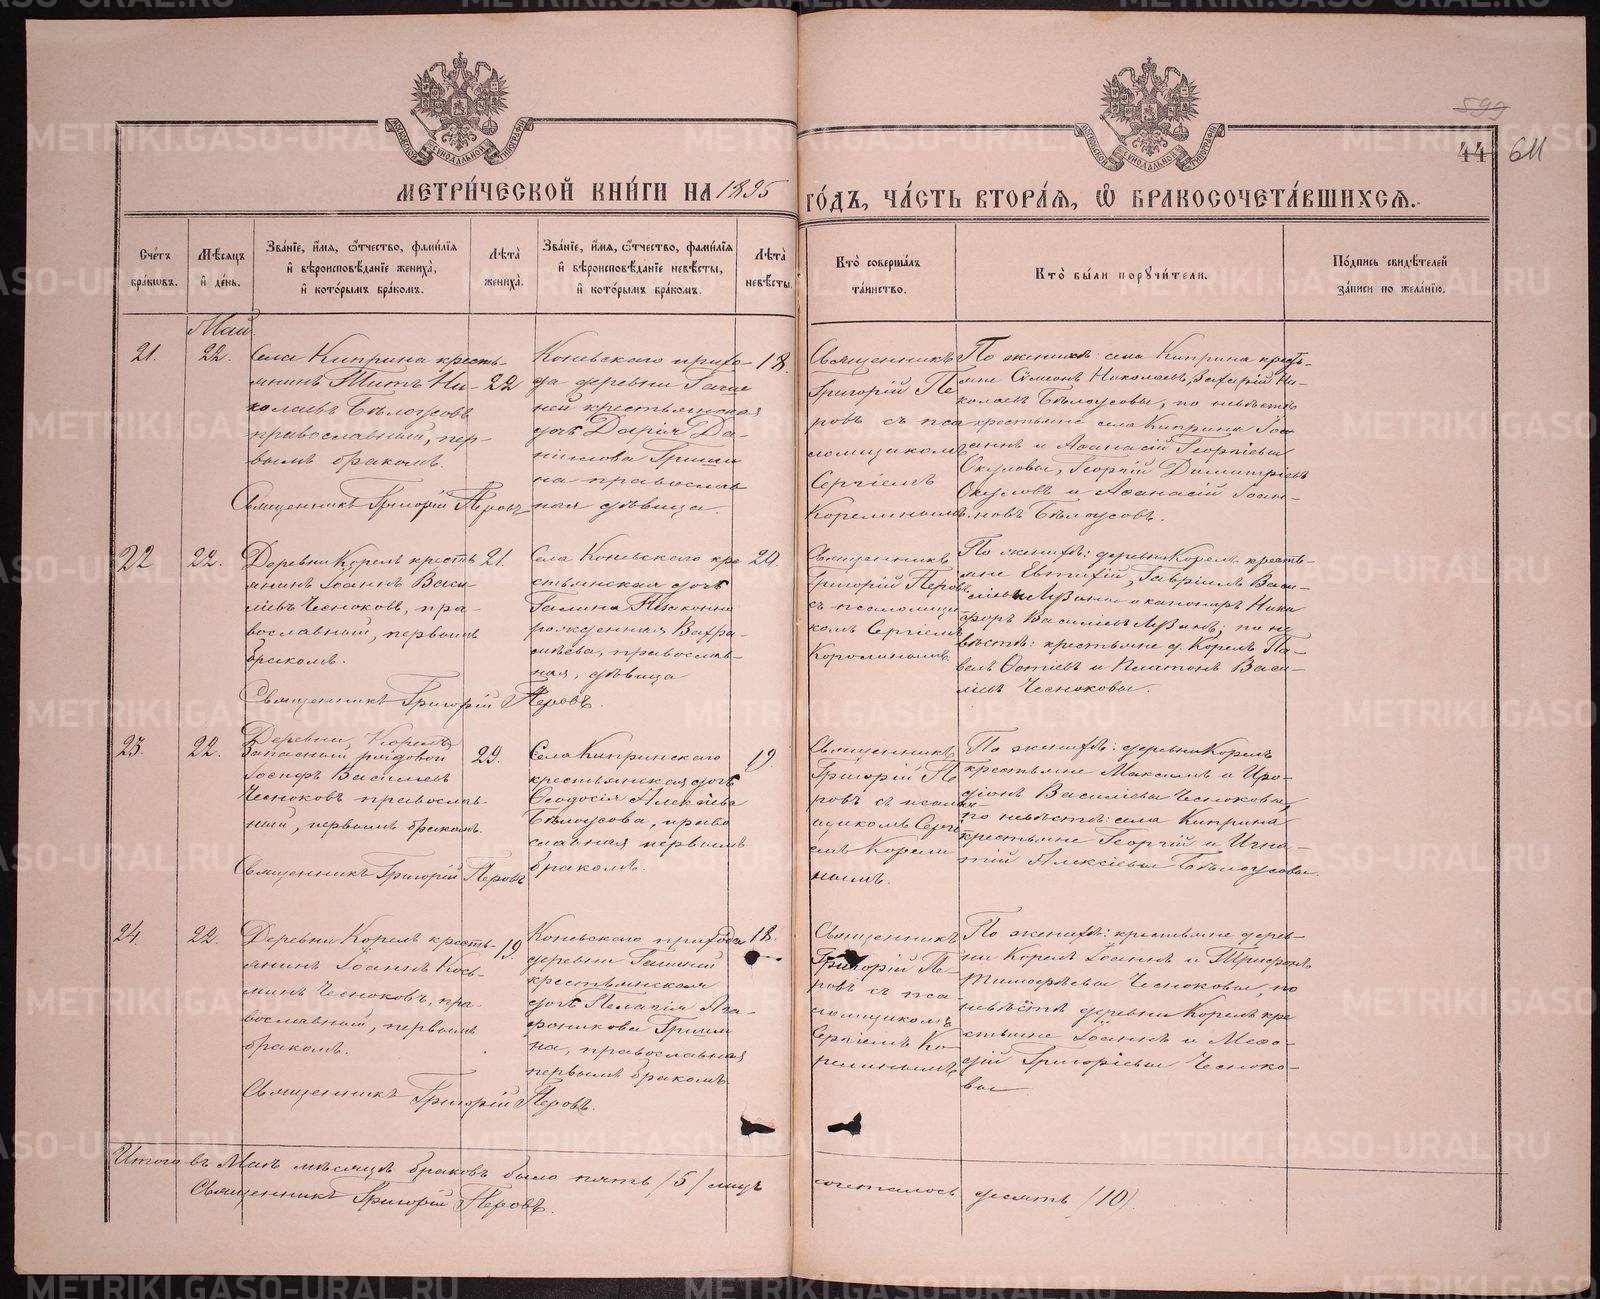 599
44 611
МЕТРИ́ЧЕСКОЙ КНИ́ГИ НА 1895 ГО́ДЪ, ЧА́СТЬ ВТОРА́Я, Ѡ҆ БРАКОСОЧЕТА́ВШИХСЯ.
Сче́тъ бра́кѡвъ.
Мѣ́сяцъ и҆ де́нь.
Зва́нїе, и҆́мя, ѻ҆́тчество, фами́лїя
и҆ вѣроисповѣ́данїе жениха̀,
и҆ кото́рымъ бра́комъ.
Лѣ́та жениха̀.
Зва́нїе, и҆́мя, ѻ҆́тчество, фами́лїя
и҆ вѣроисповѣ́данїе невѣ́сты,
и҆ кото́рымъ бра́комъ.
Лѣ́та невѣ́сты.
Кто̀ соверша́лъ
та́инство.
Кто̀ бы́ли порꙋчи́тели.
По́дпись свидѣ́телей
за́писи по жела́нїю.
Май
21.
22.
Села Киприна кресть-
янинъ Титъ Ни-
колаевъ Бѣлоусовъ
православный, пер-
вымъ бракомъ.
Священникъ Григорій Перовъ
22
Коневскаго прихо-
да деревни
крестьянская
дочь Дарія Да-
нилова
на православ
ная дѣвица.
18.
Священникъ
Григорій Пе
ровъ съ пса
ломщикомъ
Сергіемъ
Корелинымъ.
По женихѣ: села Киприна кресть-
яне Сѵмеонъ Николаевъ, Захарій Ни-
колаевъ Бѣлоусовы, по невѣстѣ
крестьяне села Киприна Іоа
ннъ и Аѳанасій Георгіевы
Окуловы, Георгій Димитріевъ
Окуловъ и Аѳанасій Іоан-
новъ Бѣлоусовъ.
22
22.
Деревни Корелъ кресть
янинъ Іоаннъ Васи-
ліевъ Чесноковъ, пра-
вославный, первымъ
бракомъ.
Священникъ Григорій Перовъ.
21.
Села Коневскаго кре
стьянская дочь
Галина
рожденная Варѳо-
православ-
ная, дѣвица
20.
Священникъ
Григорій Перовъ
съ псаломщи
комъ Сергіемъ
По женихѣ: деревни Корелъ кресть-
яне Евтихій, Гавріилъ Васи-
и Ники
форъ Василіевъ по не
вѣстѣ: крестьяне д. Корелъ Па-
велъ и Платонъ Васи-
ліевъ Чесноковы.
23.
22.
Деревни Корелъ
Запасный рядовой
Іосифъ Василіевъ
Чесноковъ православ
ный, первымъ бракомъ.
Священникъ Григорій Перовъ
29.
Села Кипринскаго
крестьянская дочь
Ѳеодосія Алексіева
Бѣлоусова, право
славная первымъ
бракомъ.
19.
Священникъ
Григорій Пе
ровъ съ псалом-
щикомъ Сергі
емъ Корели
нымъ.
По женихѣ: деревни Корелъ
крестьяне Максимъ и Иро-
діонъ Василіевы Чесноковы,
по невѣстѣ: села Киприна
крестьяне Георгій и Игна-
тій Алексіевы Бѣлоусовы.
24.
22.
Деревни Корелъ кресть-
янинъ Іоаннъ Кось-
минъ Чесноковъ, пра-
вославный, первымъ
бракомъ.
Священникъ Григорій Перовъ.
19.
Коневскаго прихода
деревни
крестьянская
дочь Пелагія
на, православная
первымъ бракомъ
18.
Священникъ
Григорій Пе-
ровъ съ пса-
ломщикомъ
Сергіемъ Ко-
релинымъ
По женихѣ: крестьяне дерев-
ни Корелъ Іоаннъ и Трифонъ
Тимоѳеевы Чесноковы, по
невѣстѣ деревни Корелъ кре
стьяне Іоаннъ и Меѳо-
дій Григоріевы Чесноко-
вы
Итого въ Маѣ мѣсяцѣ браковъ было пять /5/ лицъ сочеталось десять /10/
Священникъ Григорій Перовъ.
METRIKI.GASO-URAL.RU